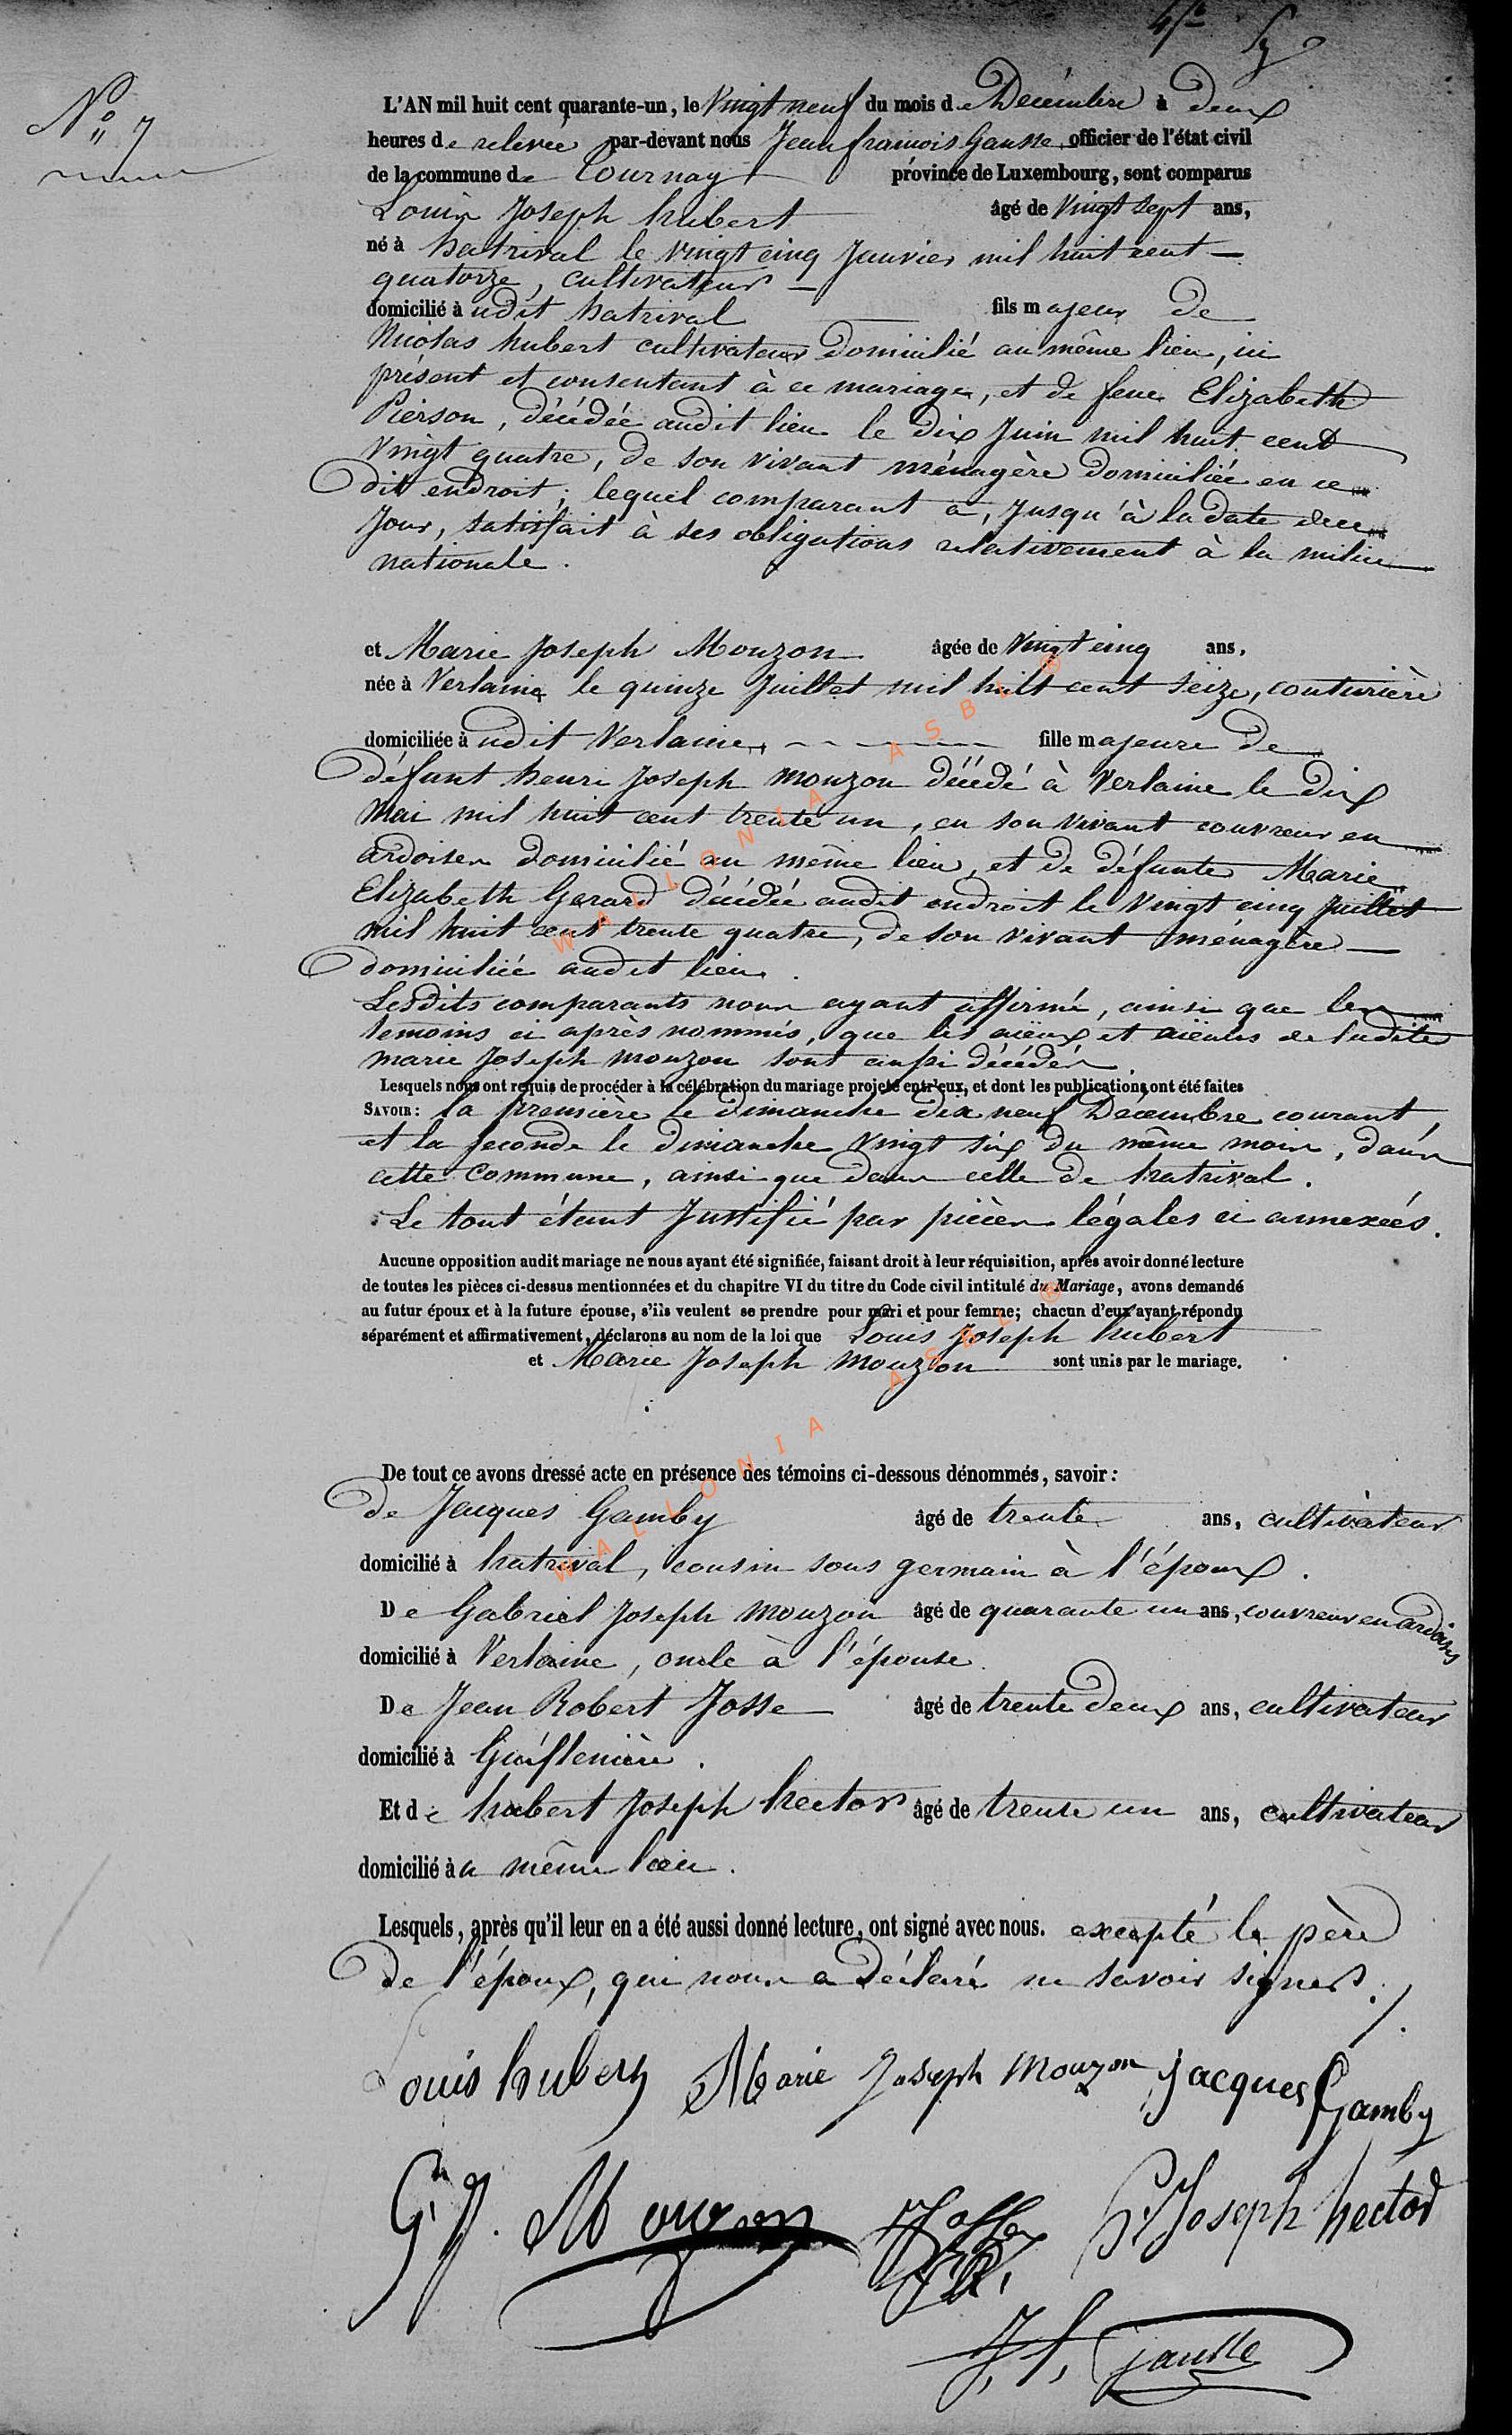 N° 7
L'AN mil huit cent quarante-un, le Vingt neuf du mois de Décembre à deux
heures de relevée par-devant nous Jean françois Gausse officier de l'état civil
de la commune de Tournay province de Luxembourg, sont comparus
Louis Joseph hubert âgé de Vingt sept ans,
né à hatrival le vingt cinq Janvier mil huit cent
quatorze, cultivateur
domicilié à udit hatrival fils majeur de
Nicolas hubert cultivateur domicilié au même lieu, ici
présent et consentant à ce mariage, et de feue Elizabeth
Pierson, décédée audit lieu le dix Juin mil huit cent
Vingt quatre, de son vivant ménagère domiciliée en ce
dit endroit; lequel comparant a, jusqu'à la date de ce
Jour, satisfait à ses obligations relativement à la milice
nationale.
et Marie Joseph Mouzon âgée de Vingt cinq ans,
née à Verlaine le quinze Juillet mil huit cent seize, couturière
domiciliée à udit Verlaine, fille majeure de
défunt henri Joseph mouzon décédé à Verlaine le dix
Mai mil huit cent trente un, en son vivant couvreur en
ardoises domicilié au même lieu, et de défunte Marie
Elizabeth Gerard décédée audit endroit le Vingt cinq Juillet
mil huit cent trente quatre, de son vivant ménagère
domiciliée audit lieu.
Lesdits comparants nous ayant affirmé, ainsi que les
temoins ci après nommés, que les aïeux et aieules de ladite
marie Joseph mouzon sont aussi décédés.
Lesquels nous ont requis de procéder à la célébration du mariage projeté entr'eux, et dont les publications ont été faites
SAVOIR: la première le dimanche dix neuf Décembre courant,
et la seconde le dimanche vingt six du même mois, dans
cette commune, ainsi que dans celle de hatrival.
Le tout étant Justifié par pièces légales ci annexées.
Aucune opposition audit mariage ne nous ayant été signifiée, faisant droit à leur réquisition, après avoir donné lecture
de toutes les pièces ci-dessus mentionnées et du chapitre VI du titre du Code civil intitulé du Mariage, avons demandé
au futur époux et à la future épouse, s'ils veulent se prendre pour mari et pour femme; chacun d'eux ayant répondu
séparément et affirmativement, déclarons au nom de la loi que Louis Joseph hubert
et Marie Joseph Mouzon sont unis par le mariage.
De tout ce avons dressé acte en présence des témoins ci-dessous dénommés, savoir:
de Jacques Gamby âgé de trente ans, cultivateur
domicilié à hatrival, cousin sous germain à l'époux.
De Gabriel Joseph Mouzon âgé de quarante un ans, couvreur en ardoises
domicilié à Verlaine, oncle à l'épouse
De Jean Robert Josse âgé de trente deux ans, cultivateur
domicilié à
Et de hubert Joseph hector âgé de trente un ans, cultivateur
domicilié à u même lieu.
Lesquels, après qu'il leur en a été aussi donné lecture, ont signé avec nous. excepté le père
de l'époux, qui nous a déclaré ne savoir signer.
Louis hubert Marie Joseph Mouzon jacques Gamby
G. J. Mouzon Josse J R. h. Joseph hector
J, f, gausse
WALLONIA ASBL ®
WALLONIA ASBL ®